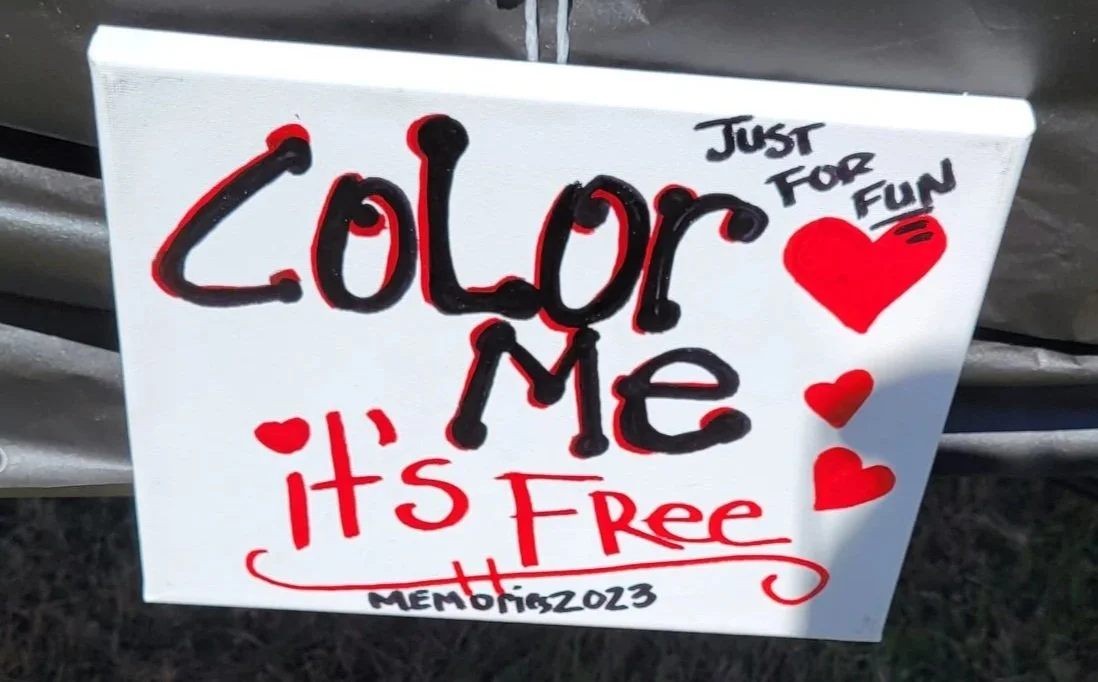 Color
Me
JUST
FOR
FUN
it's Free
#MEMories2023